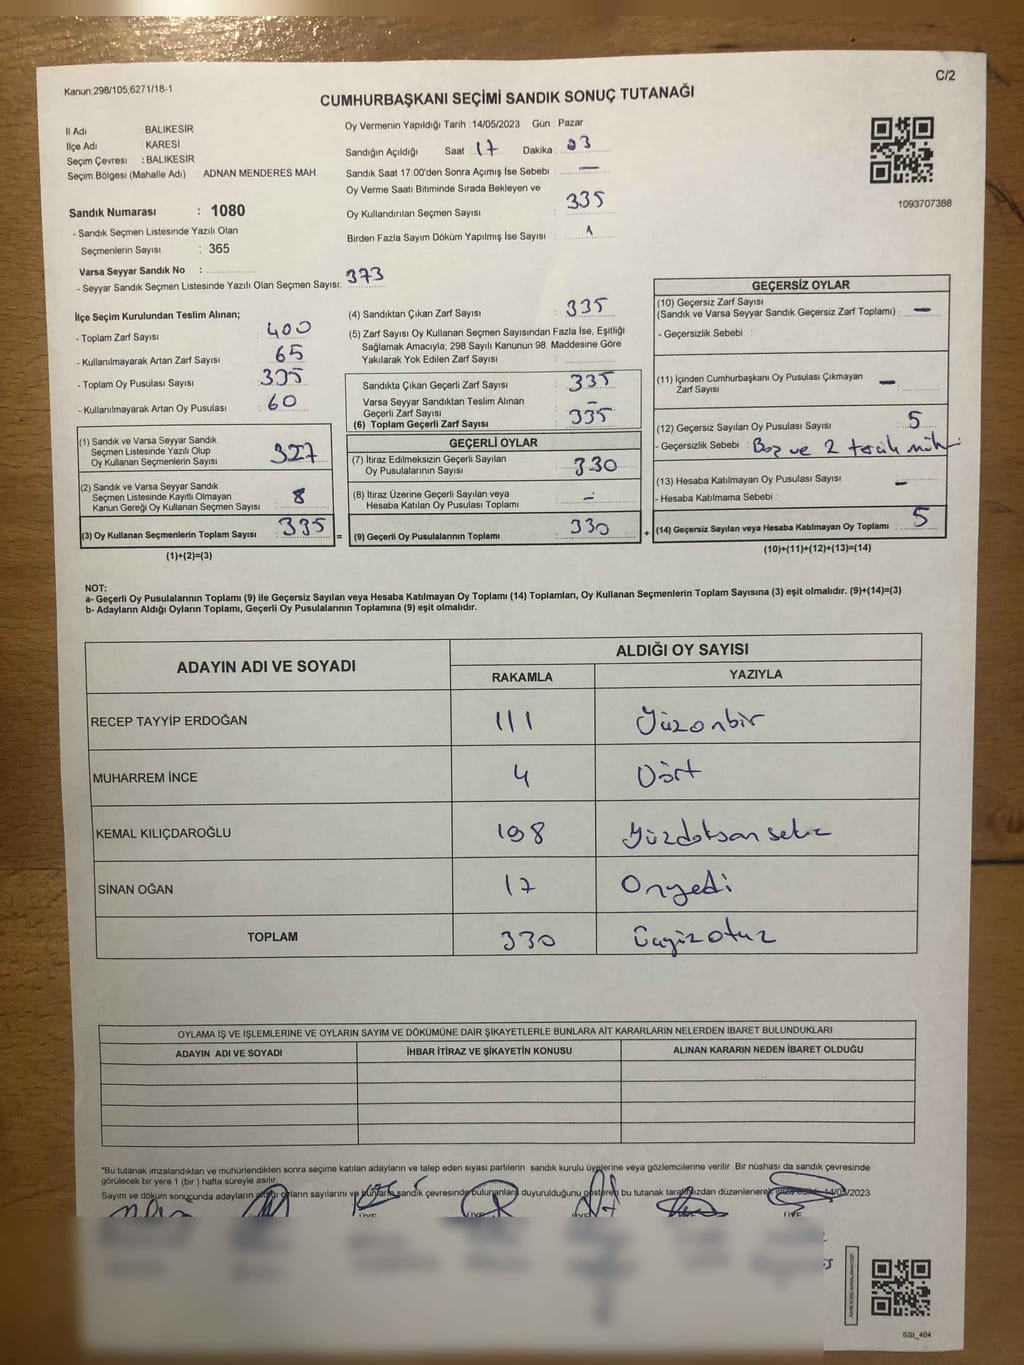 Kanun:298/105,6271/18-1
C/2
CUMHURBAŞKANI SEÇİMİ SANDIK SONUÇ TUTANAĞI
İl Adı BALIKESİR
İlçe Adı KARESİ
Seçim Çevresi : BALIKESİR
Seçim Bölgesi (Mahalle Adı) : ADNAN MENDERES MAH.
Sandık Numarası : 1080
- Sandık Seçmen Listesinde Yazılı Olan
Seçmenlerin Sayısı : 365
Varsa Seyyar Sandık No :
- Seyyar Sandık Seçmen Listesinde Yazılı Olan Seçmen Sayısı: 373
Oy Vermenin Yapıldığı Tarih : 14/05/2023 Gün : Pazar
Sandığın Açıldığı Saat : 17 Dakika : 03
Sandık Saat 17.00'den Sonra Açımış İse Sebebi : —
Oy Verme Saati Bitiminde Sırada Bekleyen ve
Oy Kullandırılan Seçmen Sayısı : 335
Birden Fazla Sayım Döküm Yapılmış İse Sayısı : 1
1093707388
İlçe Seçim Kurulundan Teslim Alınan;
- Toplam Zarf Sayısı : 400
- Kullanılmayarak Artan Zarf Sayısı : 65
- Toplam Oy Pusulası Sayısı : 395
- Kullanılmayarak Artan Oy Pusulası : 60
(1) Sandık ve Varsa Seyyar Sandık
Seçmen Listesinde Yazılı Olup
Oy Kullanan Seçmenlerin Sayısı : 327
(2) Sandık ve Varsa Seyyar Sandık
Seçmen Listesinde Kayıtlı Olmayan
Kanun Gereği Oy Kullanan Seçmen Sayısı : 8
(3) Oy Kullanan Seçmenlerin Toplam Sayısı : 335 =
(1)+(2)=(3)
(4) Sandıktan Çıkan Zarf Sayısı : 335
(5) Zarf Sayısı Oy Kullanan Seçmen Sayısından Fazla İse, Eşitliği
Sağlamak Amacıyla; 298 Sayılı Kanunun 98. Maddesine Göre
Yakılarak Yok Edilen Zarf Sayısı :
Sandıkta Çıkan Geçerli Zarf Sayısı : 335
Varsa Seyyar Sandıktan Teslim Alınan
Geçerli Zarf Sayısı : –
(6) Toplam Geçerli Zarf Sayısı : 335
GEÇERLİ OYLAR
(7) İtiraz Edilmeksizin Geçerli Sayılan
Oy Pusulalarının Sayısı : 330
(8) İtiraz Üzerine Geçerli Sayılan veya
Hesaba Katılan Oy Pusulası Toplamı : –
(9) Geçerli Oy Pusulalarının Toplamı : 330 +
GEÇERSİZ OYLAR
(10) Geçersiz Zarf Sayısı
(Sandık ve Varsa Seyyar Sandık Geçersiz Zarf Toplamı) : —
- Geçersizlik Sebebi :
(11) İçinden Cumhurbaşkanı Oy Pusulası Çıkmayan
Zarf Sayısı : —
(12) Geçersiz Sayılan Oy Pusulası Sayısı : 5
- Geçersizlik Sebebi : Boş ve 2 tercih
(13) Hesaba Katılmayan Oy Pusulası Sayısı : –
- Hesaba Katılmama Sebebi :
(14) Geçersiz Sayılan veya Hesaba Katılmayan Oy Toplamı : 5
(10)+(11)+(12)+(13)=(14)
NOT:
a- Geçerli Oy Pusulalarının Toplamı (9) ile Geçersiz Sayılan veya Hesaba Katılmayan Oy Toplamı (14) Toplamları, Oy Kullanan Seçmenlerin Toplam Sayısına (3) eşit olmalıdır. (9)+(14)=(3)
b- Adayların Aldığı Oyların Toplamı, Geçerli Oy Pusulalarının Toplamına (9) eşit olmalıdır.
ADAYIN ADI VE SOYADI
ALDIĞI OY SAYISI
RAKAMLA YAZIYLA
RECEP TAYYİP ERDOĞAN 111 Yüzonbir
MUHARREM İNCE 4 Dört
KEMAL KILIÇDAROĞLU 198 Yüzdoksan sekiz
SİNAN OĞAN 17 Onyedi
TOPLAM 330 Üçyüzotuz
OYLAMA İŞ VE İŞLEMLERİNE VE OYLARIN SAYIM VE DÖKÜMÜNE DAİR ŞİKAYETLERLE BUNLARA AİT KARARLARIN NELERDEN İBARET BULUNDUKLARI
ADAYIN ADI VE SOYADI İHBAR İTİRAZ VE ŞİKAYETİN KONUSU ALINAN KARARIN NEDEN İBARET OLDUĞU
*Bu tutanak imzalandıktan ve mühürlendikten sonra seçime katılan adayların ve talep eden siyasi partilerin sandık kurulu üyelerine veya gözlemcilerine verilir. Bir nüshası da sandık çevresinde
görülecek bir yere 1 (bir) hafta süreyle asılır.
Sayım ve döküm sonucunda adayların aldığı oyların sayılarını ve bunların sandık çevresinde bulunanlara duyurulduğunu gösteren bu tutanak tarafımızdan düzenlenerek imza edildi. 14/05/2023